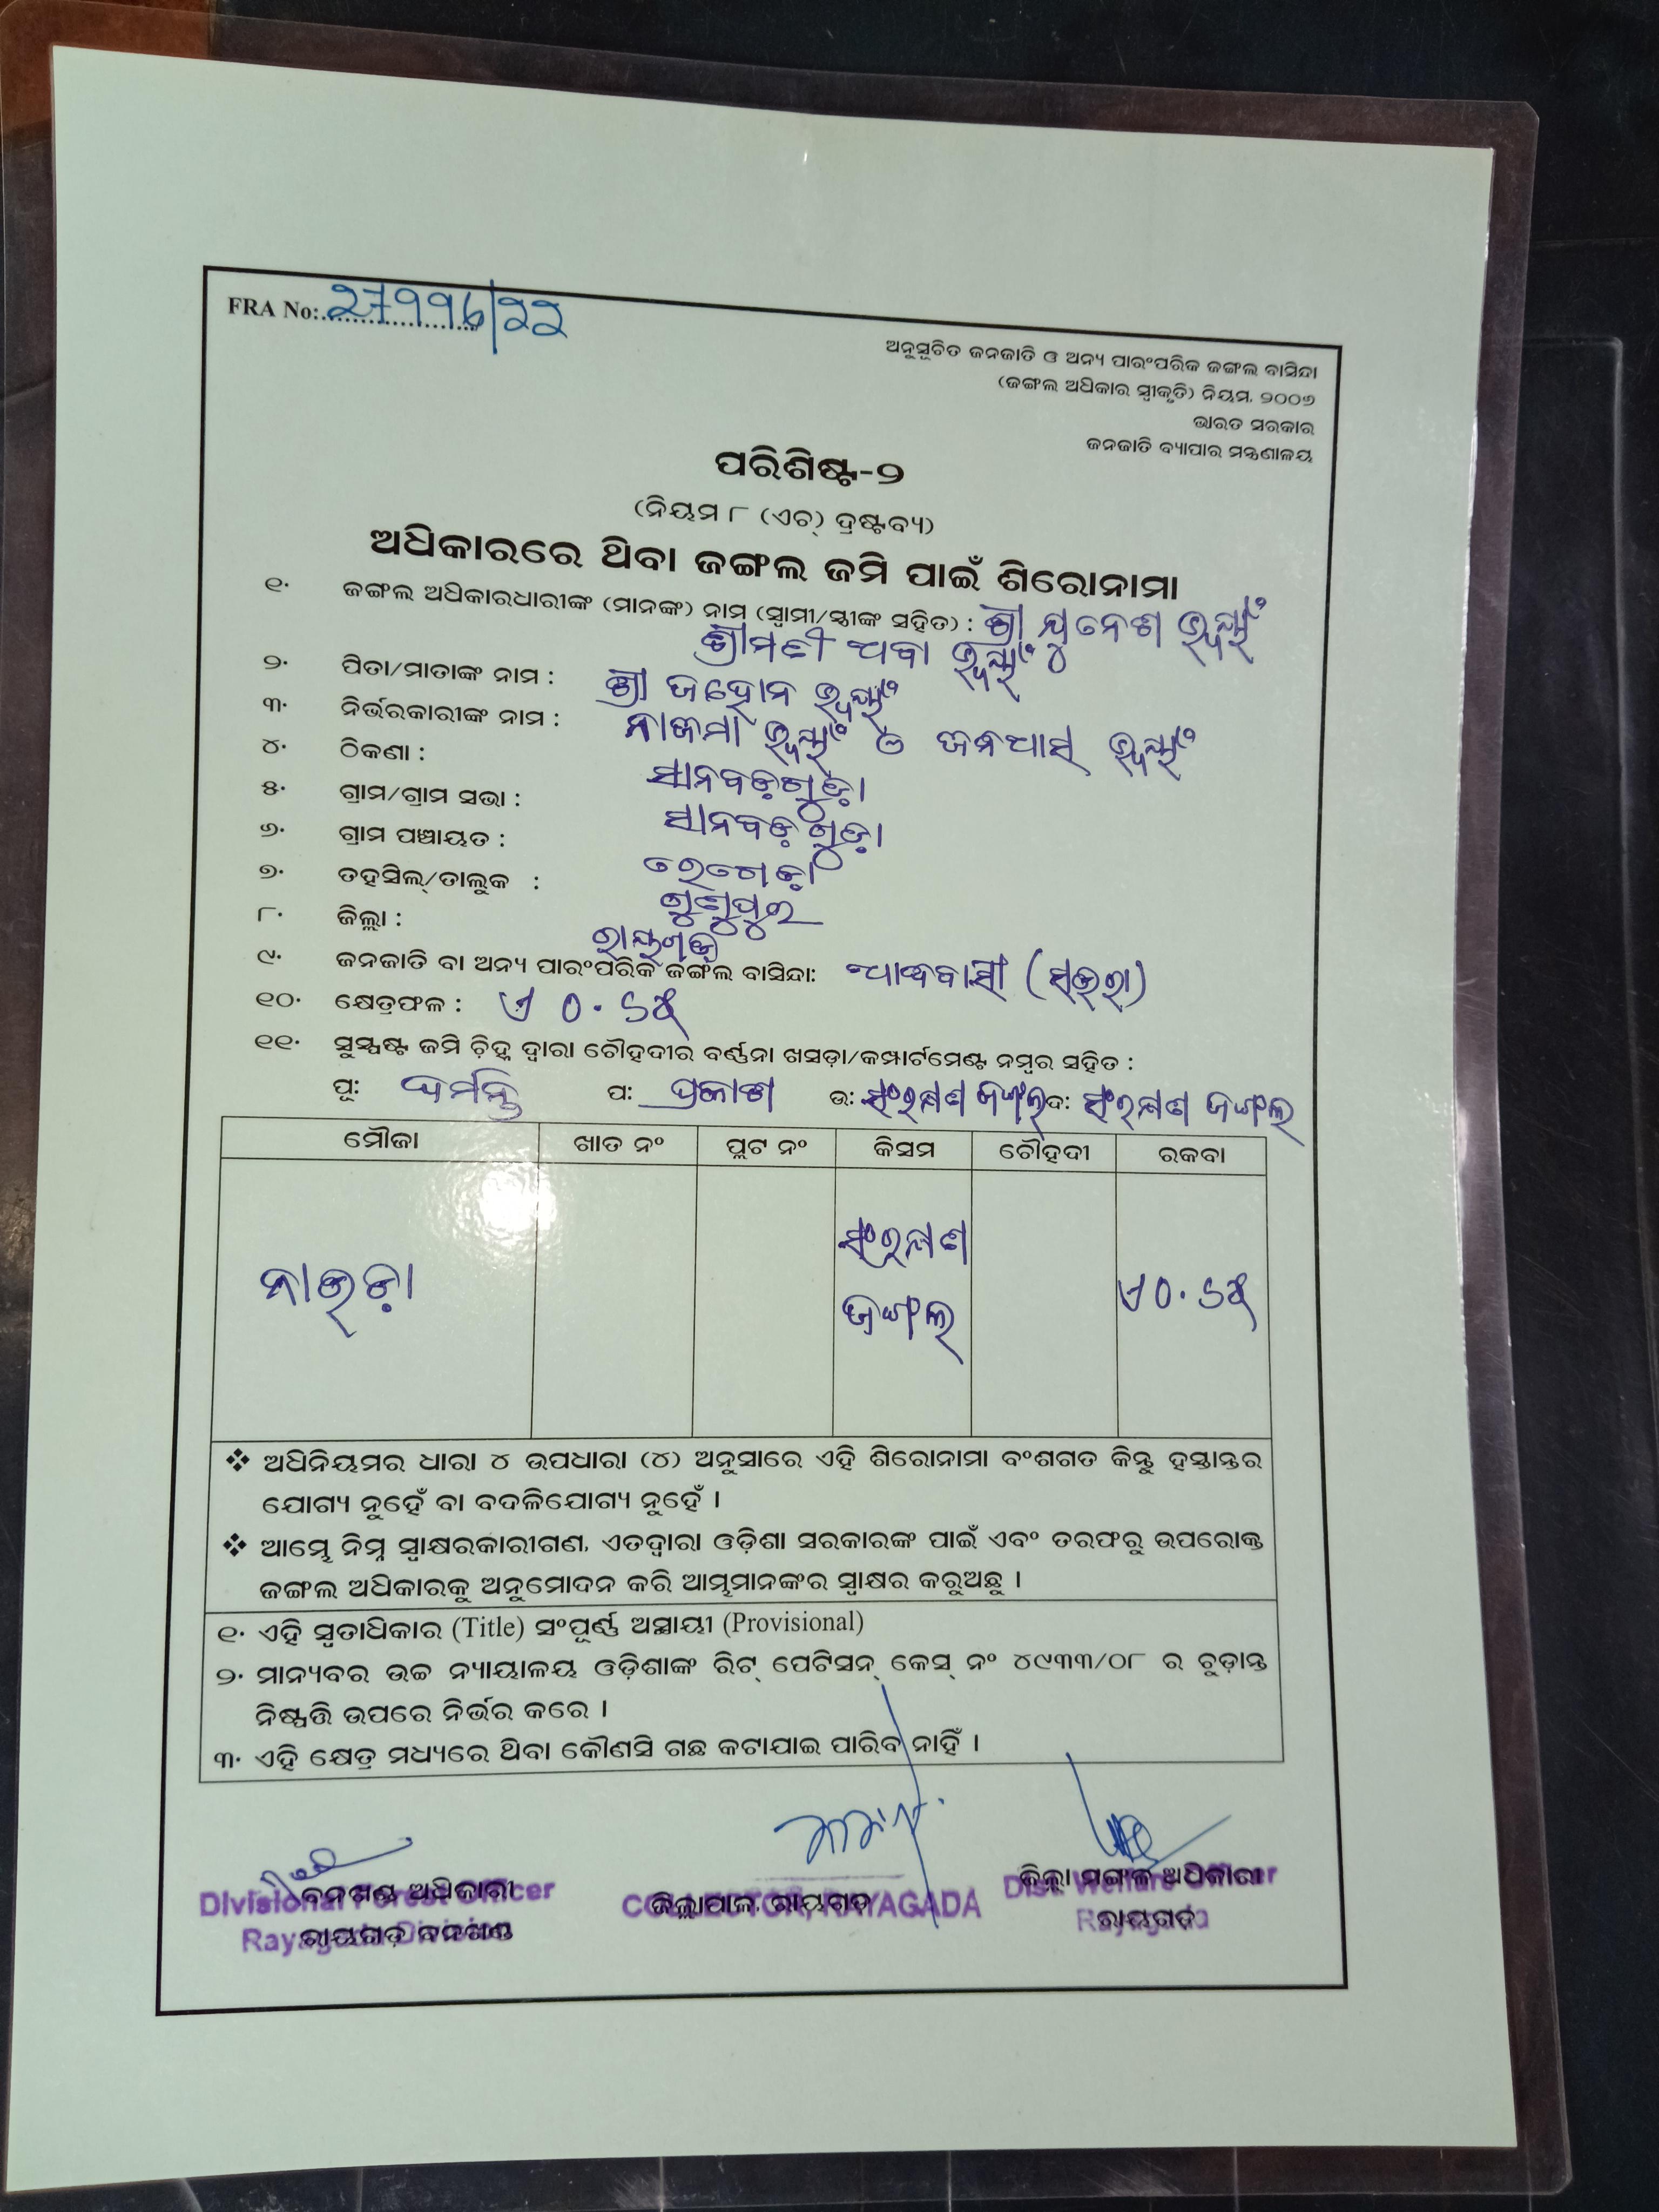 FRA No: 27996/22
ଅନୁସୂଚିତ ଜନଜାତି ଓ ଅନ୍ୟ ପାରଂପରିକ ଜଙ୍ଗଲ ବାସିନ୍ଦା
(ଜଙ୍ଗଲ ଅଧିକାର ସ୍ୱୀକୃତି) ନିୟମ, ୨୦୦୬
ଭାରତ ସରକାର
ଜନଜାତି ବ୍ୟାପାର ମନ୍ତ୍ରଣାଳୟ
ପରିଶିଷ୍ଟ-୨
(ନିୟମ ୮ (ଏଚ୍) ଦ୍ରଷ୍ଟବ୍ୟ)
ଅଧିକାରରେ ଥିବା ଜଙ୍ଗଲ ଜମି ପାଇଁ ଶିରୋନାମା
୧. ଜଙ୍ଗଲ ଅଧିକାରଧାରୀଙ୍କ (ମାନଙ୍କ) ନାମ (ସ୍ୱାମୀ/ସ୍ତ୍ରୀଙ୍କ ସହିତ) : ଶ୍ରୀ
ଶ୍ରୀମତୀ
୨. ପିତା/ମାତାଙ୍କ ନାମ : ଶ୍ରୀ
୩. ନିର୍ଭରକାରୀଙ୍କ ନାମ :
୪. ଠିକଣା : ସାନବଡ଼ଗୁଡ଼ା
୫. ଗ୍ରାମ/ଗ୍ରାମ ସଭା : ସାନବଡ଼ଗୁଡ଼ା
୬. ଗ୍ରାମ ପଞ୍ଚାୟତ :
୭. ତହସିଲ୍/ତାଲୁକ : ଗୁଣୁପୁର
୮. ଜିଲ୍ଲା : ରାୟଗଡ଼
୯. ଜନଜାତି ବା ଅନ୍ୟ ପାରଂପରିକ ଜଙ୍ଗଲ ବାସିନ୍ଦା: ଆଦିବାସୀ (ସଉରା)
୧୦. କ୍ଷେତ୍ରଫଳ : ଏ ୦.୬୫
୧୧. ସୁସ୍ପଷ୍ଟ ଜମି ଚିହ୍ନ ଦ୍ୱାରା ଚୌହଦୀର ବର୍ଣ୍ଣନା ଖସଡ଼ା/କମ୍ପାର୍ଟମେଣ୍ଟ ନମ୍ବର ସହିତ :
ପୂ: ପ: ପ୍ରକାଶ ଉ: ସଂରକ୍ଷଣ ଜଙ୍ଗଲ ଦ: ସଂରକ୍ଷଣ ଜଙ୍ଗଲ
ମୌଜା ଖାତ ନଂ ପ୍ଲଟ ନଂ କିସମ ଚୌହଦୀ ରକବା
ସଂରକ୍ଷଣ
ଜଙ୍ଗଲ ଏ ୦.୬୫
❖ ଅଧିନିୟମର ଧାରା ୪ ଉପଧାରା (୪) ଅନୁସାରେ ଏହି ଶିରୋନାମା ବଂଶଗତ କିନ୍ତୁ ହସ୍ତାନ୍ତର
ଯୋଗ୍ୟ ନୁହେଁ ବା ବଦଳିଯୋଗ୍ୟ ନୁହେଁ ।
❖ ଆମ୍ଭେ ନିମ୍ନ ସ୍ୱାକ୍ଷରକାରୀଗଣ, ଏତଦ୍ୱାରା ଓଡ଼ିଶା ସରକାରଙ୍କ ପାଇଁ ଏବଂ ତରଫରୁ ଉପରୋକ୍ତ
ଜଙ୍ଗଲ ଅଧିକାରକୁ ଅନୁମୋଦନ କରି ଆମ୍ଭମାନଙ୍କର ସ୍ୱାକ୍ଷର କରୁଅଛୁ ।
୧. ଏହି ସ୍ୱତାଧିକାର (Title) ସଂପୂର୍ଣ୍ଣ ଅସ୍ଥାୟୀ (Provisional)
୨. ମାନ୍ୟବର ଉଚ୍ଚ ନ୍ୟାୟାଳୟ ଓଡ଼ିଶାଙ୍କ ରିଟ୍ ପେଟିସନ୍ କେସ୍ ନଂ ୪୯୩୩/୦୮ ର ଚୁଡ଼ାନ୍ତ
ନିଷ୍ପତ୍ତି ଉପରେ ନିର୍ଭର କରେ ।
୩. ଏହି କ୍ଷେତ୍ର ମଧ୍ୟରେ ଥିବା କୌଣସି ଗଛ କଟାଯାଇ ପାରିବ ନାହିଁ ।
ବନଖଣ୍ଡ ଅଧିକାରୀ ଜିଲ୍ଲାପାଳ, ରାୟଗଡ଼ ଜିଲ୍ଲା ମଙ୍ଗଳ ଅଧିକାରୀ
ରାୟଗଡ଼ ବନଖଣ୍ଡ ରାୟଗଡ଼
Divisional Forest Officer COLLECTOR, RAYAGADA Dist. Welfare Officer
Rayagada Division Rayagada